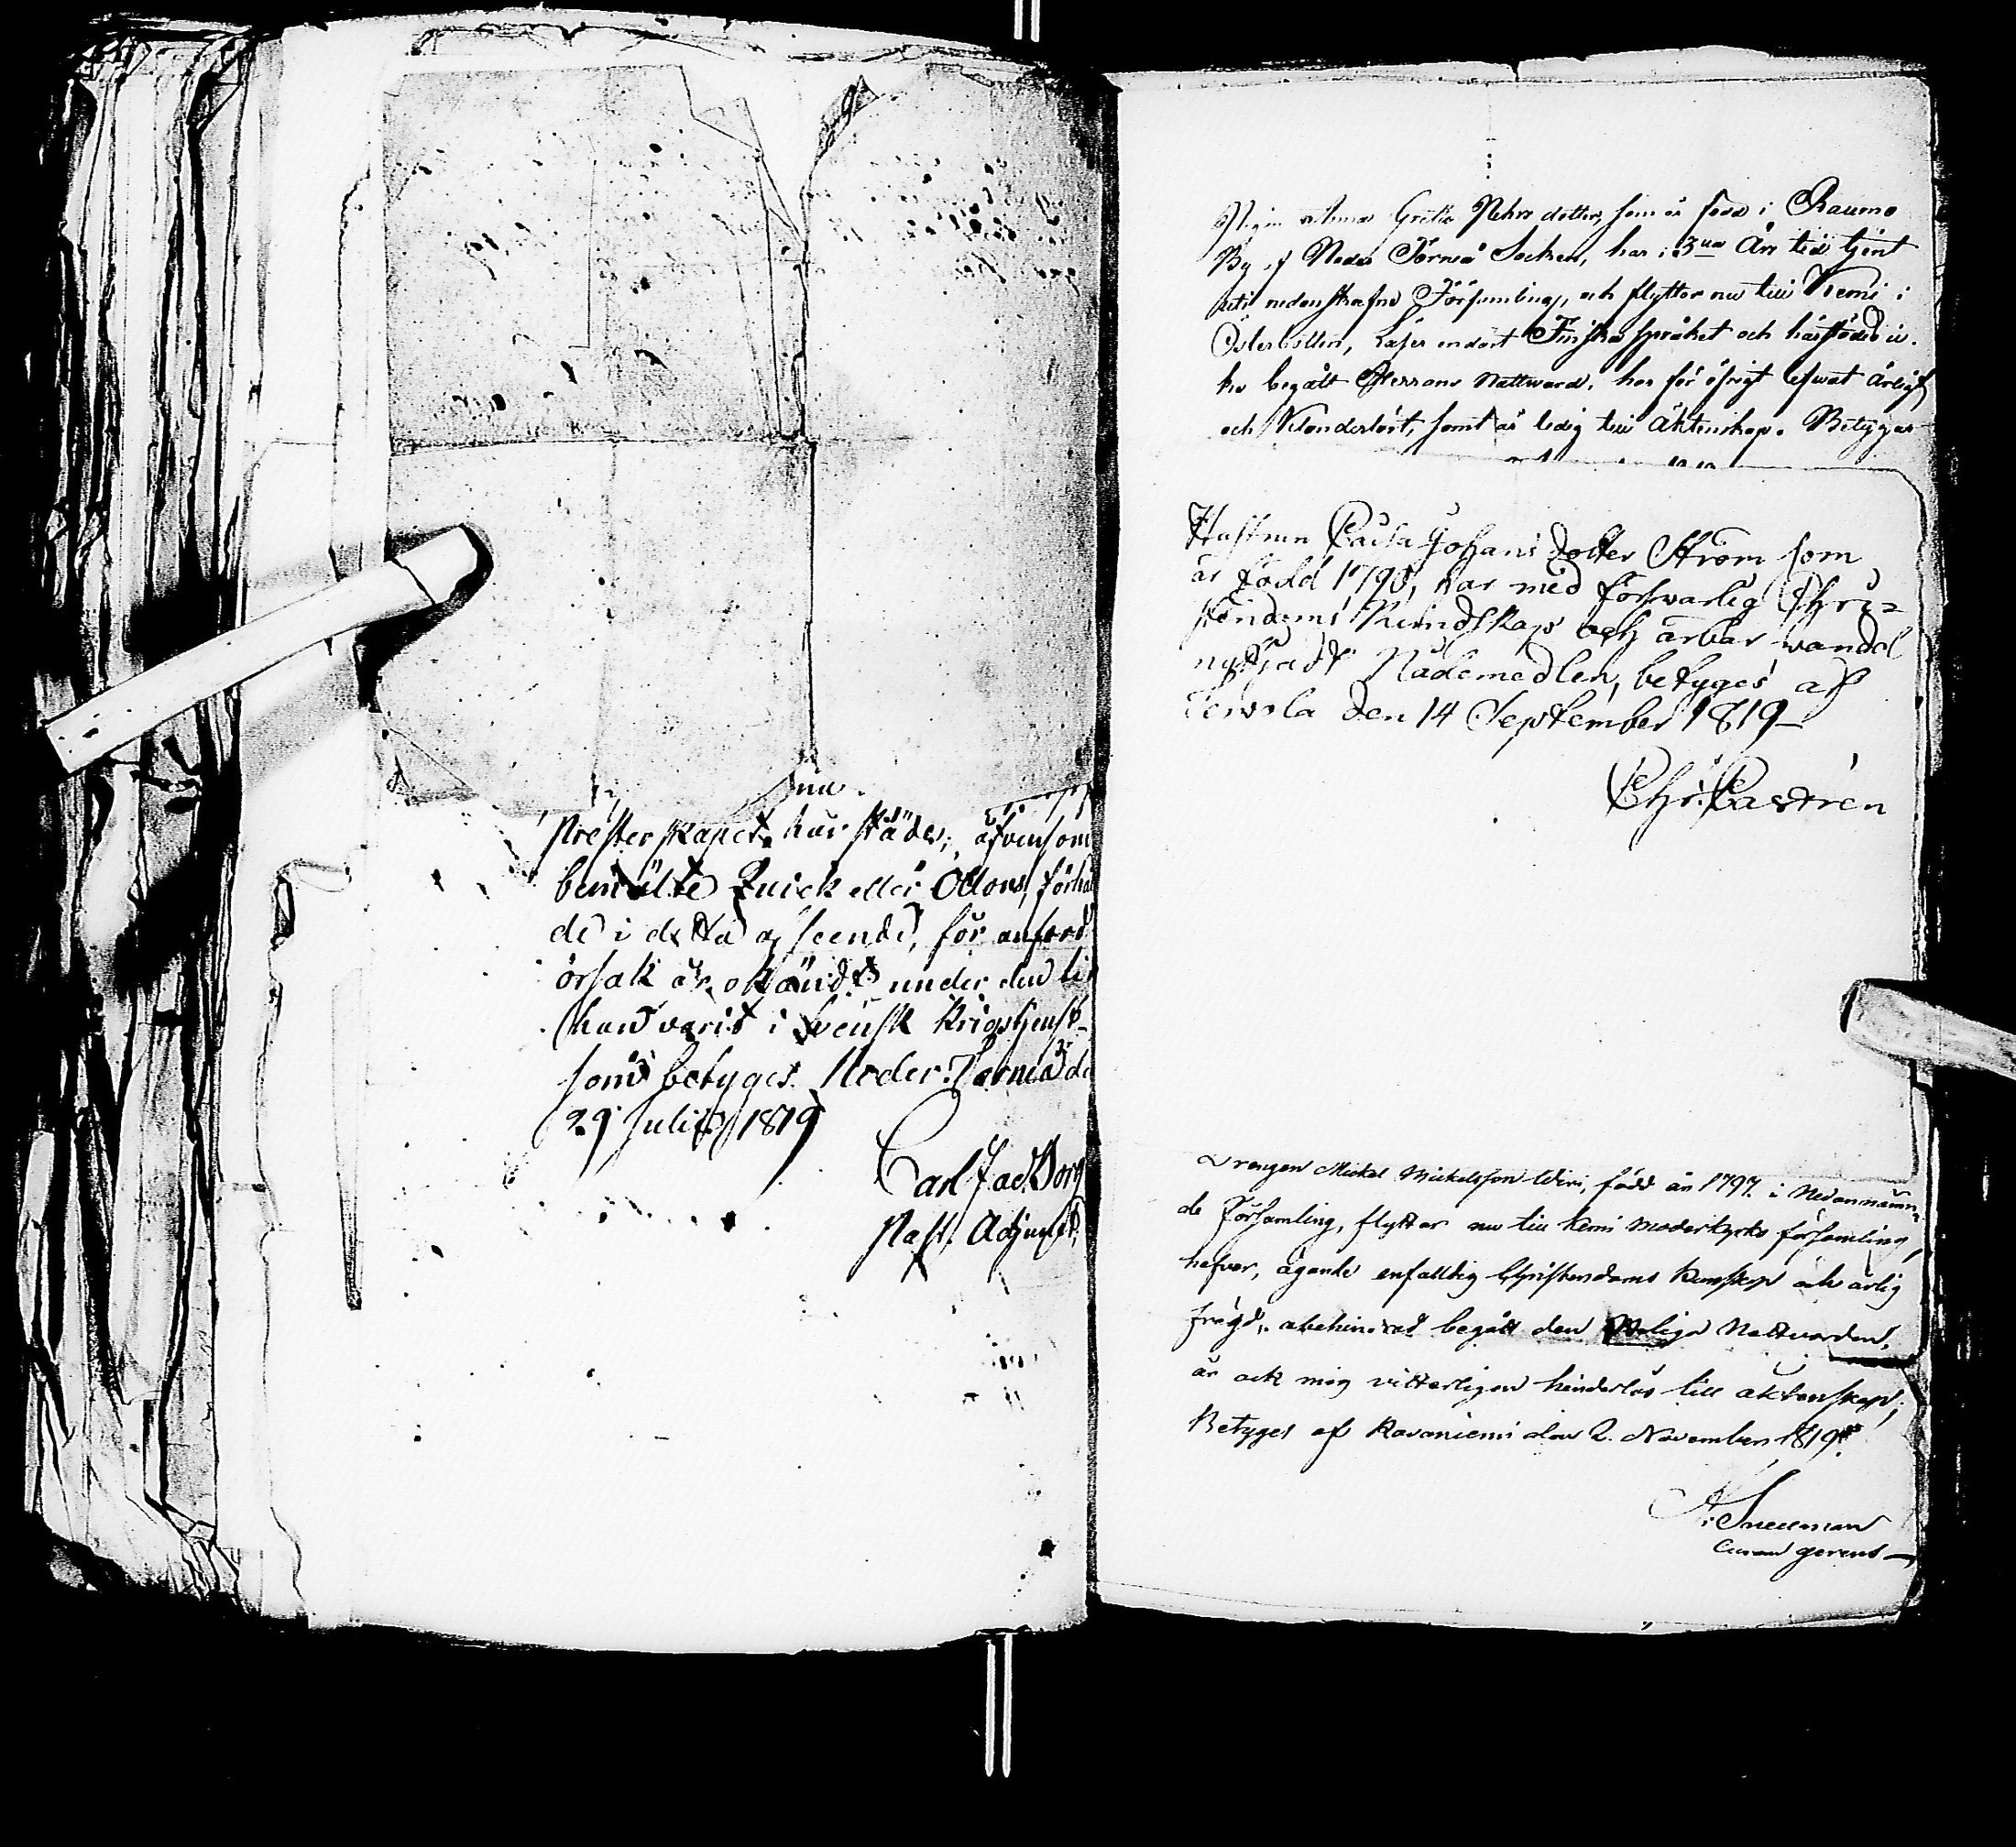 nu
Presterskapet härstädes, äfvensom
bemälte Quick eller Ollons, förhål
de i detta afseende, för anförd
orsak är okändt under den ti
han varit i Svensk Krigstjenst-
som betyges. Neder Torneå de
29 Julii 1819
Carl Jac. Borg
Past. Adjunct,
Pigan Anna Greta Pehrs dotter, som är född i Raumo
By af Neder Torneå Sochen, har i 3ne Års tid tjent
uti nedanskrefne Församling, och flyttar nu till Kemi i
Österbotten, Läser endast Finska språket och härstädes
begått Herrans Nattward. har för öfrigt lefwat ärligt
och Klanderlöst, samt är ledig till Äktenskap. Betygar
Hustrun Caisa Johans dotter Ström som
är född 1790, har med förswarlig Chri=
stendoms Kundskap och ärbar wandel
nyttjadt Nådemedlen, betyges af
Terwola den 14 September 1819
Chr: Castrén
Drengen Mickel Mickelsson Wiri, född år 1797. i Nedannämn-
de Församling, flyttar nu till Kemi Moderkyrko församling,
hafver, ägande enfalldig Christendoms Kunskap och ärlig
frägd, obehindrad begått den Heliga Nattvarden,
är ock mig vitterligen hinderlös till äktenskap;
Betyges af Rovaniemi den 2. November 1819.
A. Snellman
Curam gerens